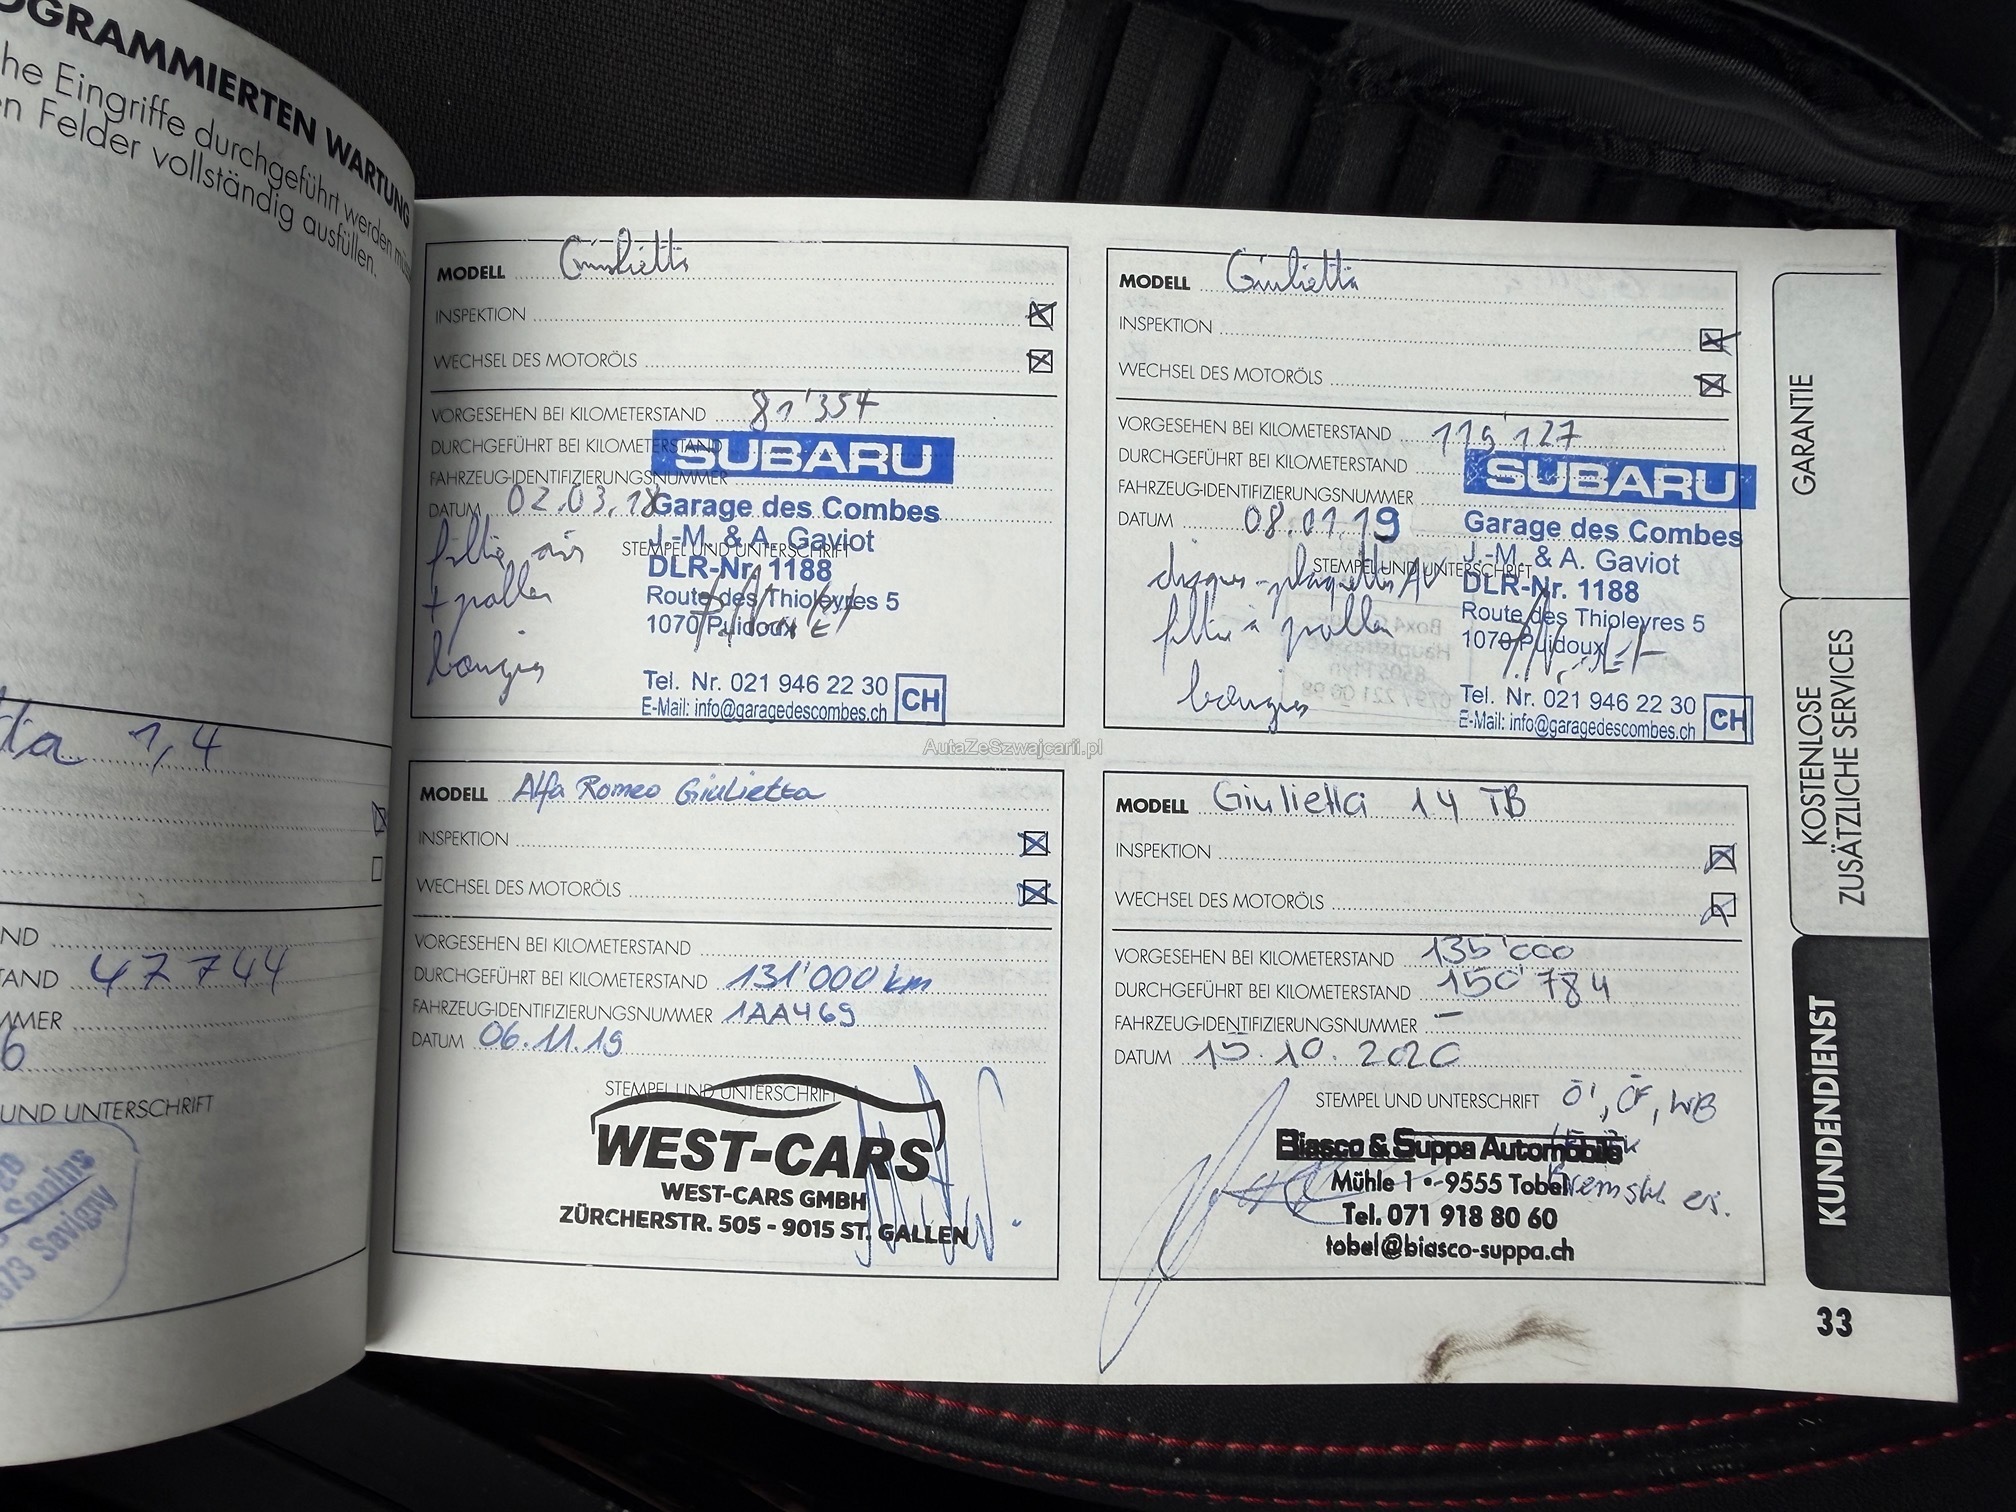 OGRAMMIERTEN WARTUNG
he Eingriffe durchgeführt werden müss
n Felder vollständig ausfüllen.
1,4
ND
TAND 47744
MMER
6
UND UNTERSCHRIFT
Savigny
MODELL Giulietta
INSPEKTION
WECHSEL DES MOTORÖLS
VORGESEHEN BEI KILOMETERSTAND 81'357
DURCHGEFÜHRT BEI KILOMETERSTAND
SUBARU
FAHRZEUG-IDENTIFIZIERUNGSNUMMER
DATUM 02.03.18
Garage des Combes
STEMPEL UND UNTERSCHRIFT
J.-M. & A. Gaviot
DLR-Nr. 1188
Route des Thioleyres 5
1070 Puidoux
filtre air
+ pollen
bougies
Tel. Nr. 021 946 22 30
E-Mail: info@garagedescombes.ch
CH
MODELL Giulietta
INSPEKTION
WECHSEL DES MOTORÖLS
VORGESEHEN BEI KILOMETERSTAND
DURCHGEFÜHRT BEI KILOMETERSTAND
SUBARU
FAHRZEUG-IDENTIFIZIERUNGSNUMMER
DATUM 08.01.19
Garage des Combes
STEMPEL UND UNTERSCHRIFT
J.-M. & A. Gaviot
DLR-Nr. 1188
Route des Thioleyres 5
1070 Puidoux
disques - plaquettes AV
filtre à pollen
bougies
Tel. Nr. 021 946 22 30
E-Mail: info@garagedescombes.ch
CH
AutaZeSzwajcarii.pl
MODELL Alfa Romeo Giulietta
INSPEKTION
WECHSEL DES MOTORÖLS
VORGESEHEN BEI KILOMETERSTAND
DURCHGEFÜHRT BEI KILOMETERSTAND 131'000 km
FAHRZEUG-IDENTIFIZIERUNGSNUMMER 1AA469
DATUM 06.11.19
STEMPEL UND UNTERSCHRIFT
WEST-CARS
WEST-CARS GMBH
ZÜRCHERSTR. 505 - 9015 ST. GALLEN
MODELL Giulietta 1.4 TB
INSPEKTION
WECHSEL DES MOTORÖLS
VORGESEHEN BEI KILOMETERSTAND 135'000
DURCHGEFÜHRT BEI KILOMETERSTAND 150'784
FAHRZEUG-IDENTIFIZIERUNGSNUMMER -
DATUM 15.10.2020
STEMPEL UND UNTERSCHRIFT
Biasco & Suppa Automobile
Mühle 1 • 9555 Tobel
Tel. 071 918 80 60
tobel@biasco-suppa.ch
GARANTIE
KOSTENLOSE
ZUSÄTZLICHE SERVICES
KUNDENDIENST
33